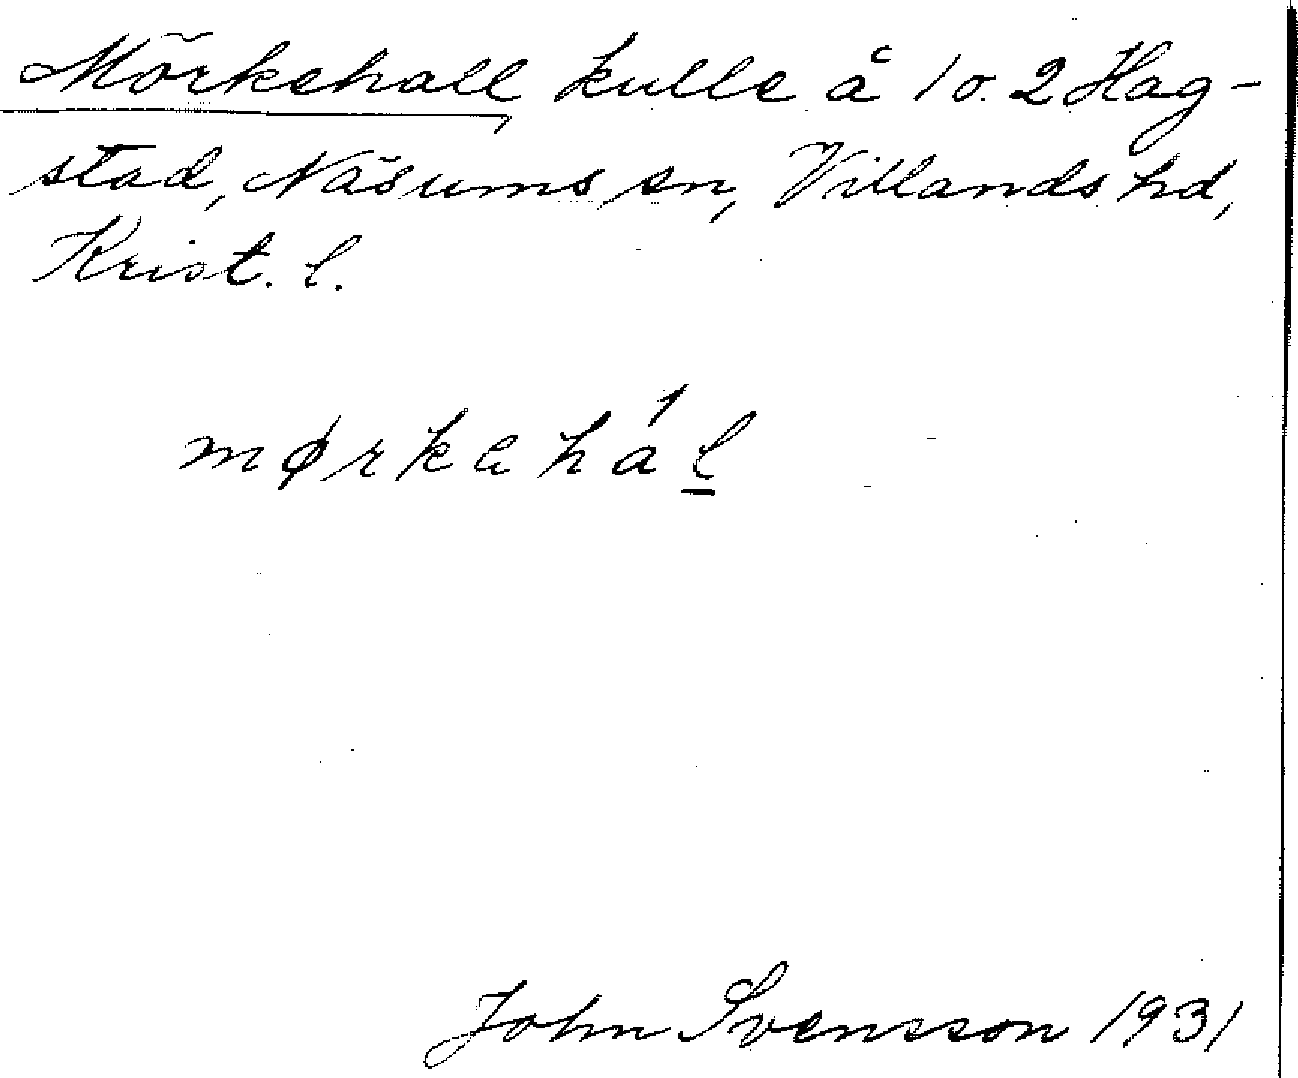 Mörkehall, kulle å 1 o. 2 Hag-
stad, Näsums sn, Villands hd,
Krist. l.
mørkahál
John Svensson 1931